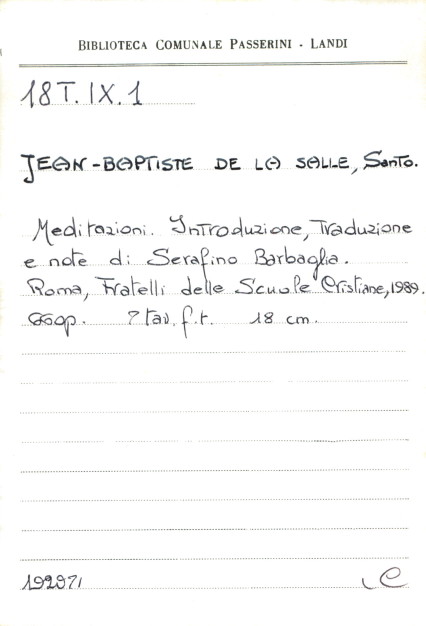 BIBLIOTECA COMUNALE PASSERINI - LANDI
18T.IX.1
JEAN-BAPTISTE DE LA SALLE, Santo.
Meditazioni. Introduzione, Traduzione
e note di Serafino Barbaglia.
Roma, Fratelli delle Scuole Cristiane, 1989.
p. tav. f.t. 18 cm.